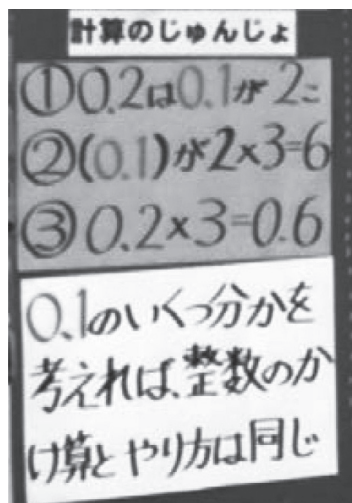 計算のじゅんじょ
①0.2は0.1が2こ
②(0.1)が2×3=6
③0.2×3=0.6
0.1のいくつ分かを
考えれば、整数のか
け算とやり方は同じ